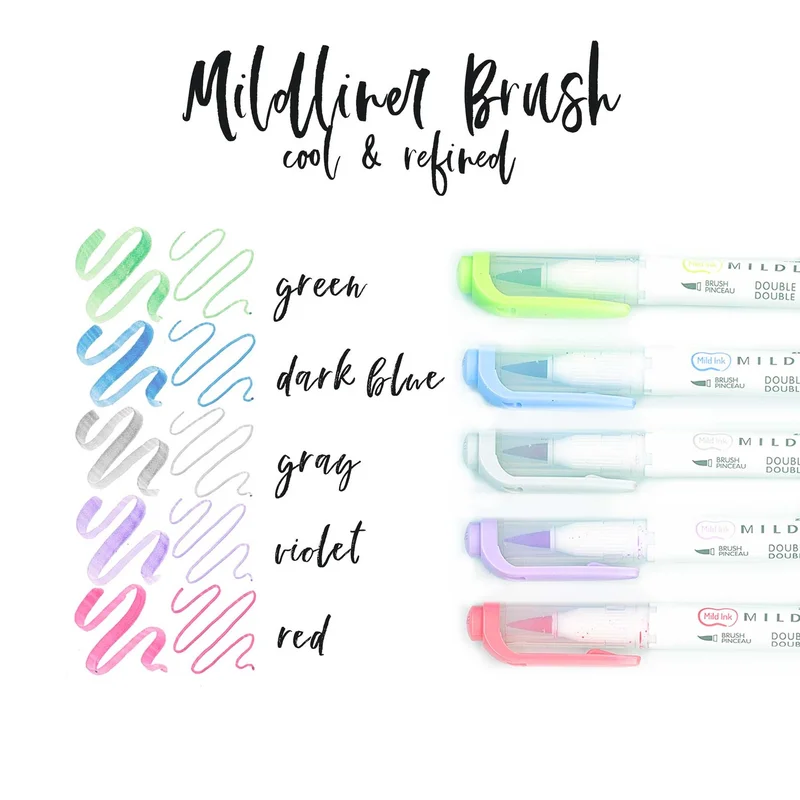 Mildliner Brush
cool & refined
green
dark blue
gray
violet
red
Mild Ink MILDL
BRUSH
PINCEAU
DOUBLE
DOUBLE
Mild Ink MILD
BRUSH
PINCEAU
DOUBL
DOUBL
Mild Ink MILD
BRUSH
PINCEAU
DOUBL
DOUBL
Mild Ink MILD
BRUSH
PINCEAU
DOUB
DOUB
Mild Ink MILD
BRUSH
PINCEAU
DOUB
DOUB